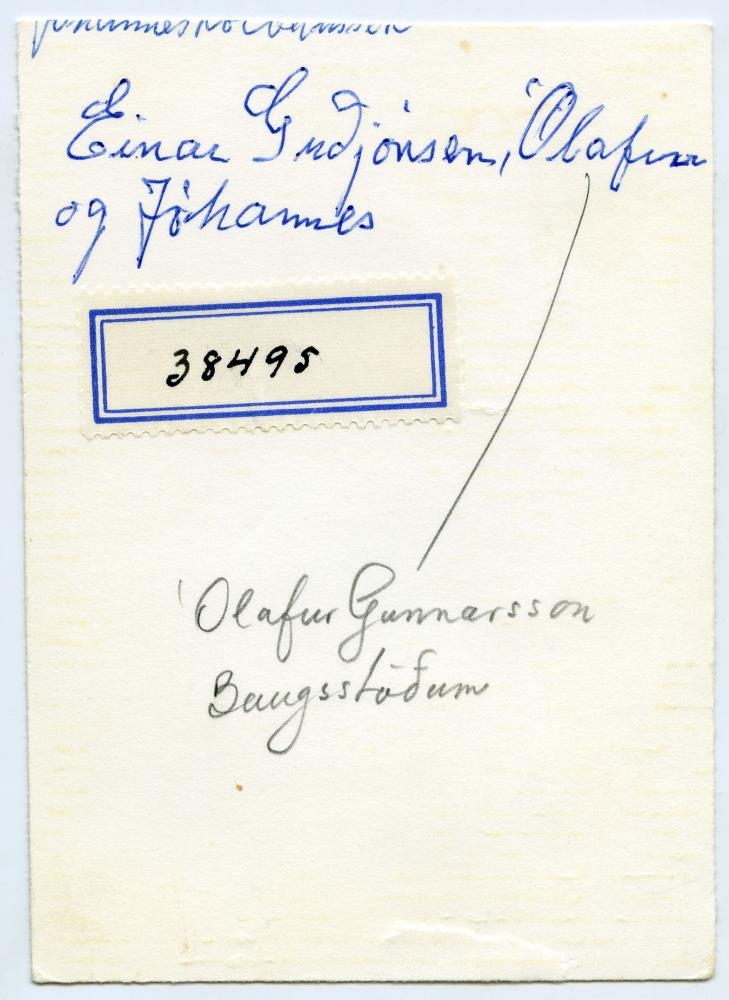 Einar Guðjónsen, Ólafur
og Jóhannes
38495
Ólafur Gunnarsson
Baugsstöðum